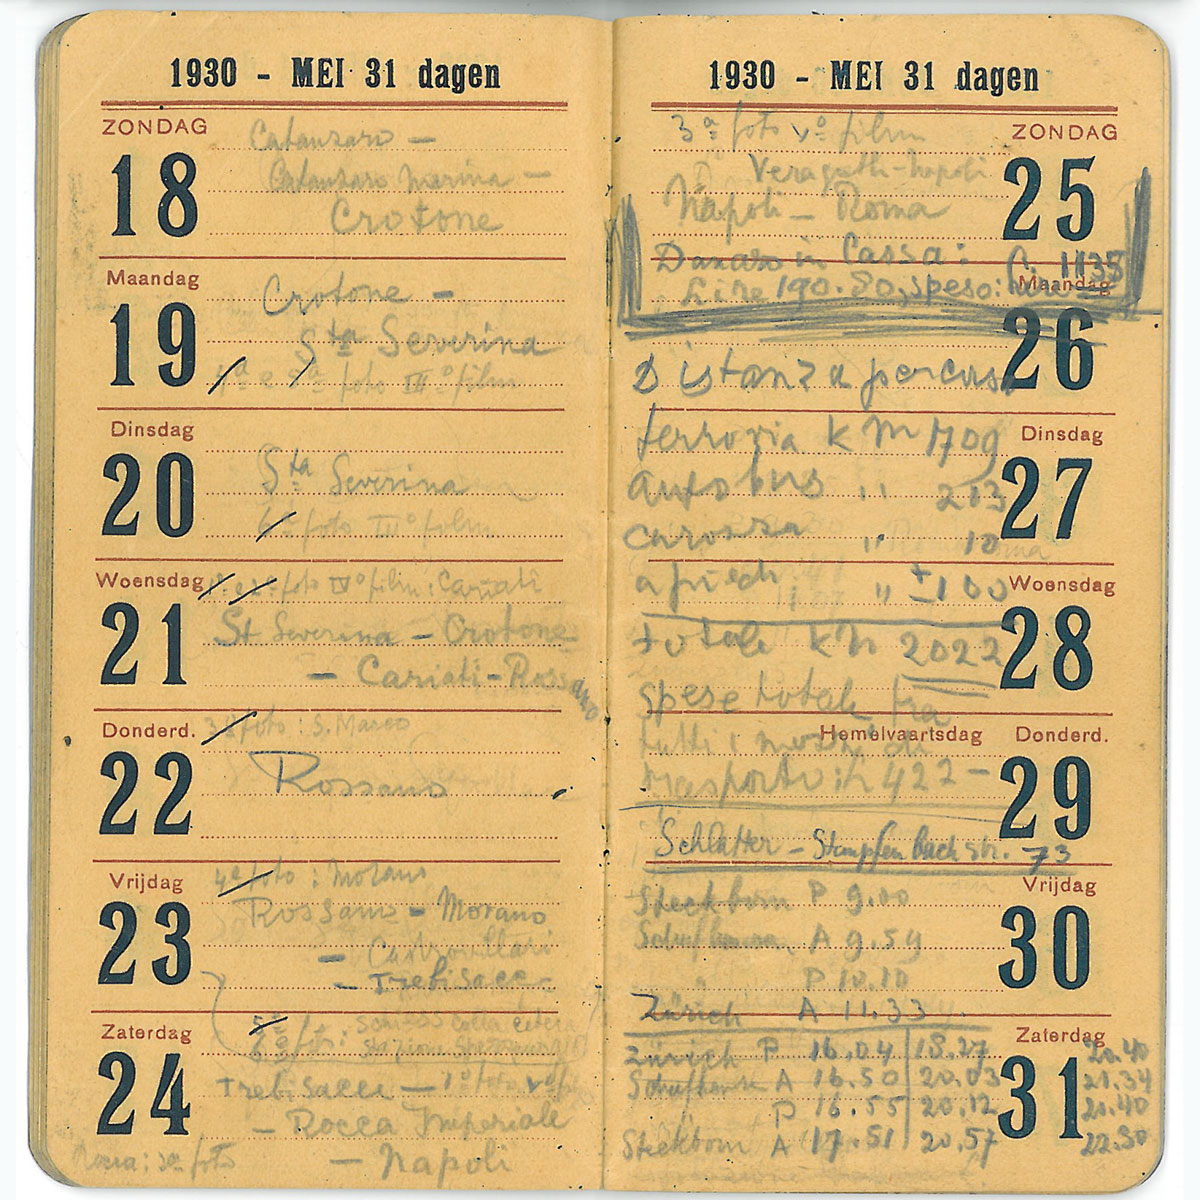 1930 - MEI 31 dagen
ZONDAG
18
Catanzaro -
Catanzaro Marina -
Crotone
Maandag
19
Crotone -
Sta Severina
4a e 5a foto III° film
Dinsdag
20
Sta Severina
6a foto III° film
Woensdag
21
1a e 2a foto IV° film: Cariati
St Severina - Crotone
- Cariati - Rossano
Donderd.
22
3a foto: S. Marco
Rossano
Vrijdag
23
4a foto: Morano
Rossano - Morano
- Castrovillari
- Trebisacce
Zaterdag
24
5a
6a foto: Stazione
Trebisacce - 1a foto V°
- Rocca Imperiale
- Napoli
Rocca: 2a foto
1930 - MEI 31 dagen
ZONDAG
25
3a foto V° film
Veraguth-Napoli
Napoli - Roma
Danaro in Cassa: Lire 1135
Maandag
26
Lire 190.80, speso: Lire
Distanza percorsa
Dinsdag
27
ferrovia km 1709
autobus " 203
carozza " 10
Woensdag
28
a piedi " ± 100
totale km 2022
spese totale tra
Hemelvaartsdag Donderd.
29
tutti i mezzi di
trasporto Lit 422 -
Schlatter - Stampfenbachstr. 73
Vrijdag
30
Steckborn P 9.00
Schafhausen A 9.59
" P 10.10
Zürich A 11.33
Zaterdag
31
Zürich P 16.04 18.27 20.40
Schafhausen A 16.50 20.03 21.34
P 16.55 20.12 21.40
Steckborn A 17.51 20.57 22.30